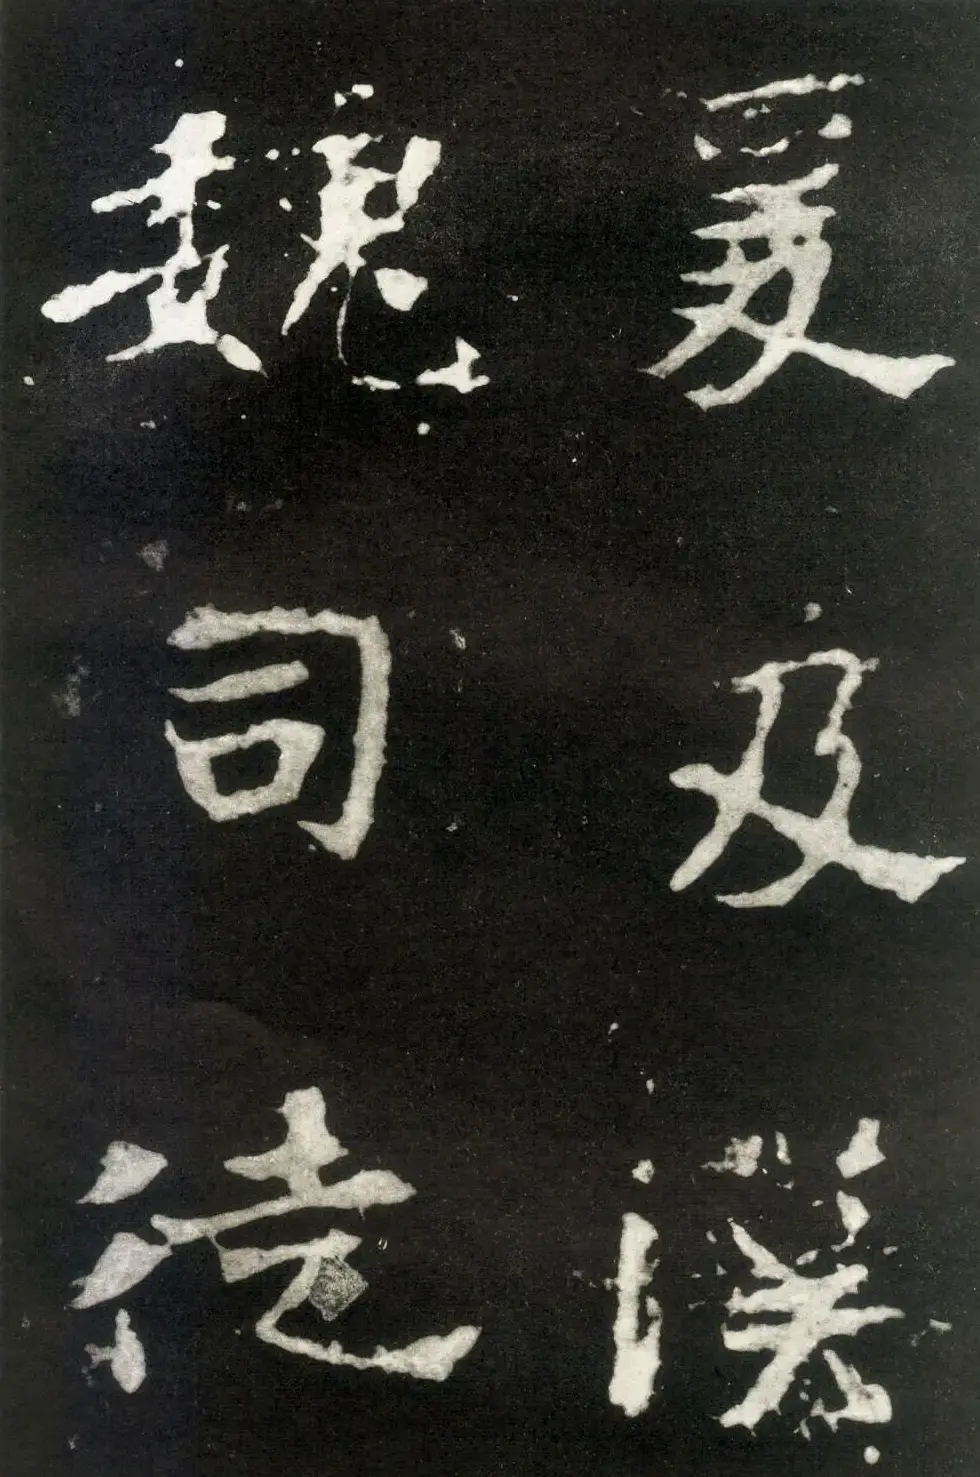 爰及漢
魏司徒